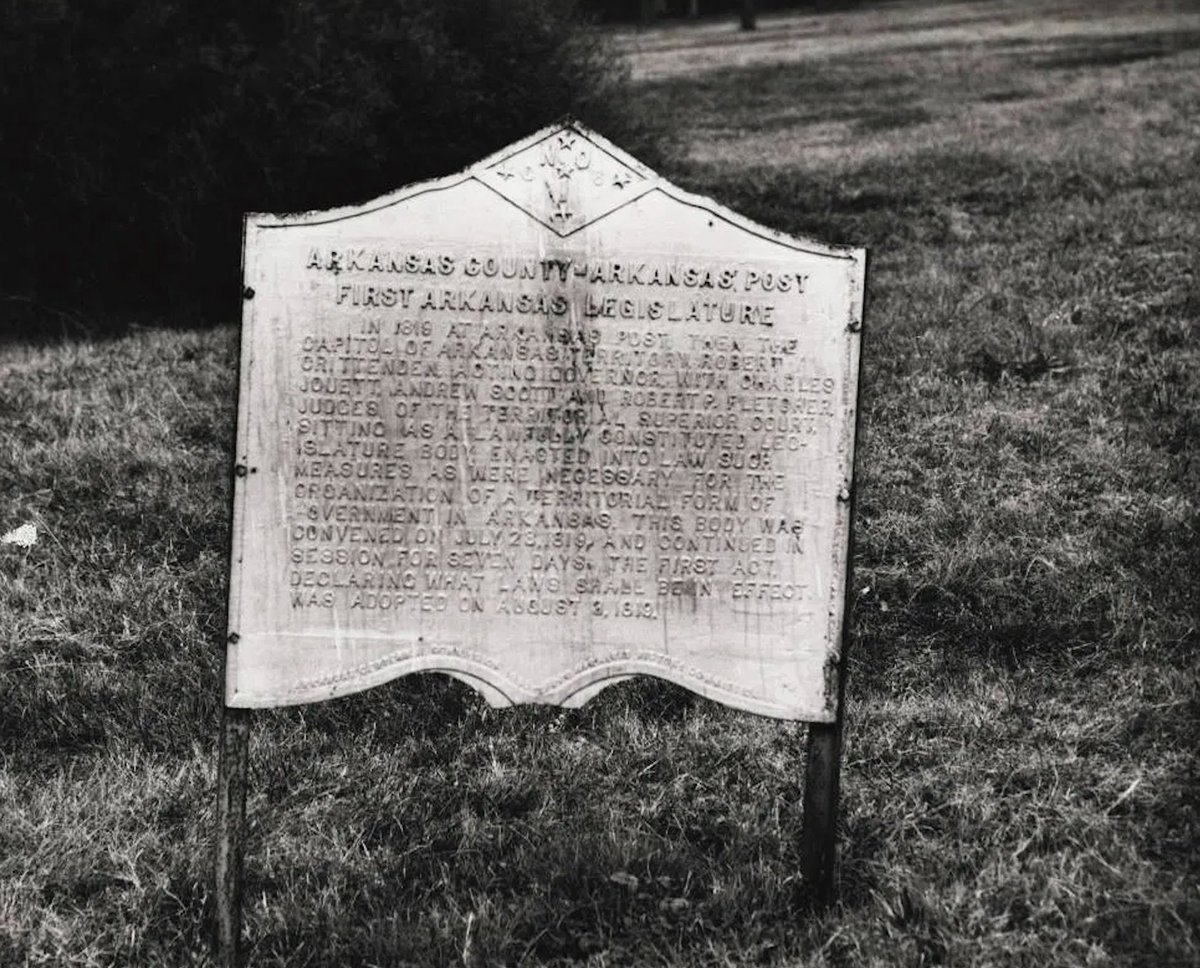 ARKANSAS COUNTY-ARKANSAS POST
FIRST ARKANSAS LEGISLATURE
IN 1819 AT ARKANSAS POST, THEN THE
CAPITOL OF ARKANSAS TERRITORY, ROBERT
CRITTENDEN, ACTING GOVERNOR, WITH CHARLES
JOUETT, ANDREW SCOTT AND ROBERT P. FLETSHER,
JUDGES OF THE TERRITORIAL SUPERIOR COURT,
SITTING AS A LAWFULLY CONSTITUTED LEG-
ISLATURE BODY, ENACTED INTO LAW SUCH
MEASURES AS WERE NECESSARY FOR THE
ORGANIZATION OF A TERRITORIAL FORM OF
GOVERNMENT IN ARKANSAS. THIS BODY WAS
CONVENED ON JULY 28, 1819, AND CONTINUED IN
SESSION FOR SEVEN DAYS. THE FIRST ACT,
DECLARING WHAT LAWS SHALL BE IN EFFECT,
WAS ADOPTED ON AUGUST 3, 1819.